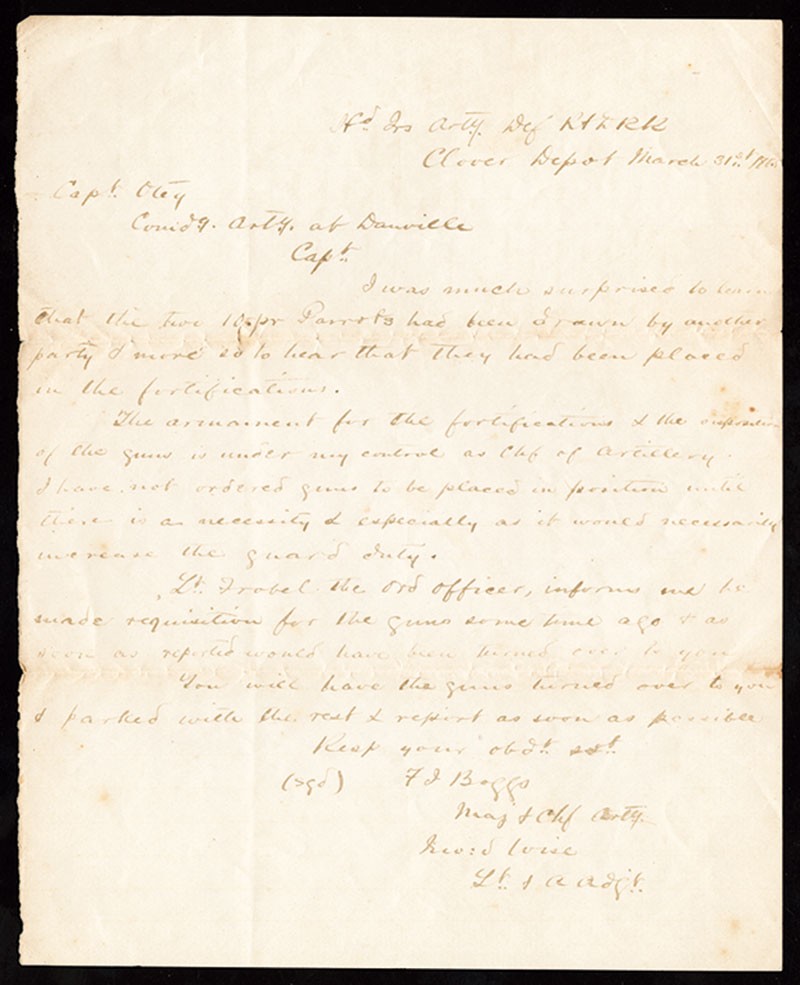 Hd Qrs Arty. Def R & D R R
Clover Depot March 31st
Capt. Otey
Comdg. Arty. at Danville
Capt.
I was much surprised to learn
that the two 10 pr Parrots had been drawn by another
party & more so to hear that they had been placed
in the fortifications.
The armament for the fortifications & the disposition
of the guns is under my control as Chf of Artillery.
I have not ordered guns to be placed in position until
there is a necessity & especially as it would necessarily
increase the guard duty.
Lt. Frobel the Ord officer, informs me he
made requisition for the guns some time ago & as
soon as reported would have been turned over to you
You will have the guns turned over to you
& parked with the rest & report as soon as possible
Resp your obdt. svt.
(sgd) F J Boggs
Maj & Chf Arty.
Wise
Lt. & A Adjt.